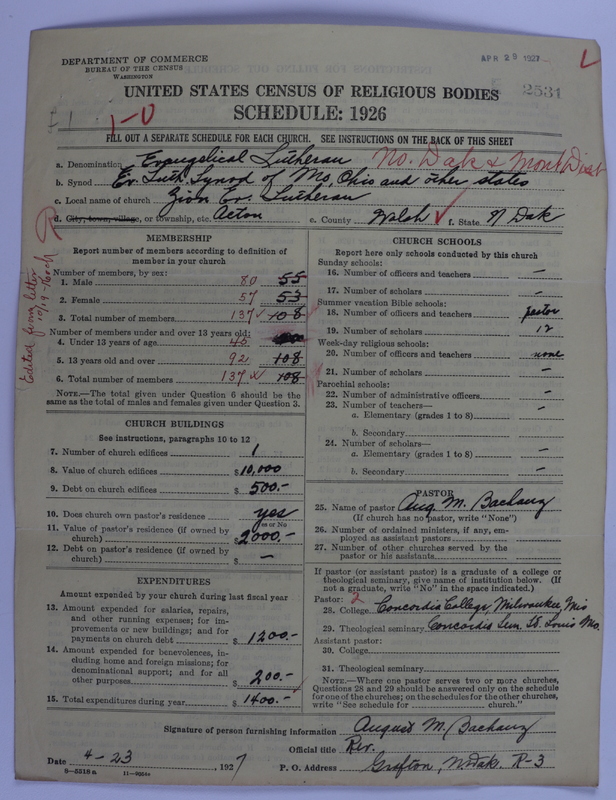 APR 29 1927
DEPARTMENT OF COMMERCE
BUREAU OF THE CENSUS
WASHINGTON
UNITED STATES CENSUS OF RELIGIOUS BODIES
2531
SCHEDULE: 1926
1-0
FILL OUT A SEPARATE SCHEDULE FOR EACH CHURCH. SEE INSTRUCTIONS ON THE BACK OF THIS SHEET
a. Denomination Evangelical Lutheran No. Dak & Mont Dist
b. Synod Ev. Luth. Synod of Mo, Ohio and other states
c. Local name of church Zion Ev. Lutheran
d. City, town, village, or township, etc. Acton e. County Walsh f. State N Dak
Edited from letter
MEMBERSHIP
Report number of members according to definition of
member in your church
Number of members, by sex:
1. Male 80 55
2. Female 57 53
3. Total number of members 137 108
Number of members under and over 13 years old:
4. Under 13 years of age 45
5. 13 years old and over 92 108
6. Total number of members 137 108
NOTE.—The total given under Question 6 should be the
same as the total of males and females given under Question 3.
CHURCH BUILDINGS
See instructions, paragraphs 10 to 12
7. Number of church edifices 1
8. Value of church edifices $10,000
9. Debt on church edifices $500.-
10. Does church own pastor's residence yes
Yes or No
11. Value of pastor's residence (if owned by
church) $2000.-
12. Debt on pastor's residence (if owned by
church) $ —
EXPENDITURES
Amount expended by your church during last fiscal year
13. Amount expended for salaries, repairs,
and other running expenses; for im-
provements or new buildings; and for
payments on church debt $1200.-
14. Amount expended for benevolences, in-
cluding home and foreign missions; for
denominational support; and for all
other purposes $200.-
15. Total expenditures during year $1400.-
CHURCH SCHOOLS
Report here only schools conducted by this church
Sunday schools:
16. Number of officers and teachers —
17. Number of scholars —
Summer vacation Bible schools:
18. Number of officers and teachers pastor
19. Number of scholars 12
Week-day religious schools:
20. Number of officers and teachers none
21. Number of scholars —
Parochial schools:
22. Number of administrative officers —
23. Number of teachers—
a. Elementary (grades 1 to 8) —
b. Secondary
24. Number of scholars—
a. Elementary (grades 1 to 8) —
b. Secondary —
PASTOR
25. Name of pastor Aug. M. Bachanz
(If church has no pastor, write "None")
26. Number of ordained ministers, if any, em-
ployed as assistant pastors
27. Number of other churches served by the
pastor or his assistants
If pastor (or assistant pastor) is a graduate of a college or
theological seminary, give name of institution below. (If
not a graduate, write "No" in the space indicated.)
Pastor: 2
28. College Concordia College, Milwaukee, Wis
29. Theological seminary Concordia Sem. St. Louis Mo.
Assistant pastor:
30. College
31. Theological seminary
NOTE.—Where one pastor serves two or more churches,
Questions 28 and 29 should be answered only on the schedule
for one of the churches; on the schedules for the other churches,
write "See schedule for church."
Signature of person furnishing information August M. Bachanz
Official title Rev.
Date 4-23, 1927 P. O. Address Grafton, N. Dak. R-3
8—5318 a